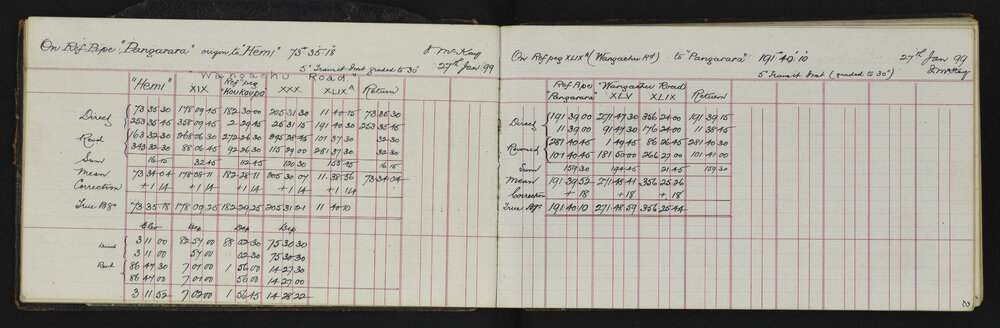 On Ref Pipe "Pangarara" origin to "Hemi" 75°·35'·18 J McKay
5" Transit Inst graded to 30" 27th Jan 99
"Wangaehu Road"
"Hemi" XIX Ref peg "Koukoupo" XXX XLIX^A Return
Direct 73·35·30 178·09·45 182·30·00 205·31·30 11·40·15 73·35·30
253·35·45 358·09·45 2·29·45 25·31·15 191·40·30 253·35·45
Revd 163·32·30 268·06·30 272·26·30 295·28·45 101·37·30 32·30
343·32·30 88·06·45 92·26·30 115·29·00 281·37·30 32·30
Sum 16·15 32·45 112·45 120·30 155·45 16·15
Mean 73·34·04 178·08·11 182·28·11 205·30·07 11·38·56 73·34·04
Correction +1·14 +1·14 +1·14 +1·14 +1·14
True Bgs 73·35·18 178·09·25 182·29·25 205·31·21 11·40·10
Elev Dep Dep Dep
Direct 3·11·00 82·57·00 88·02·30 75·30·30
3·11·00 57·00 02·30 75·30·30
Revd 86·47·30 7·01·00 1·56·00 14·27·30
86·47·00 7·01·00 56·00 14·27·00
3·11·52 7·02·00 1·56·45 14·28·22
On Ref peg XLIX^A (Wangaehu Rd) to "Pangarara" 191°·40'·10 27th Jan 99
5" Transit Inst (graded to 30") J McKay
Ref Pipe "Wangaehu Road"
"Pangarara" XLV XLIX Return
Direct 191·39·00 271·47·30 356·24·00 191·39·15
11·39·00 91·47·30 176·24·00 11·38·45
Reversed 281·40·45 1·49·45 86·26·45 281·40·30
101·40·45 181·50·00 266·27·00 101·41·00
Sum 159·30 194·45 21·45 159·30
Mean 191·39·52 271·48·41 356·25·26
Correction +·18 +·18 +·18
True Bgs 191·40·10 271·48·59 356·25·44
2